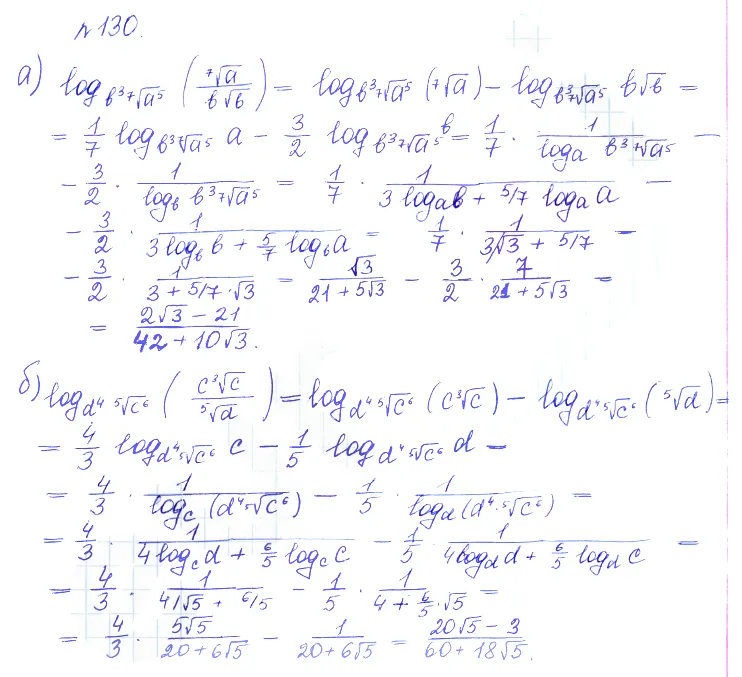 № 130.
а) log_{b³ ⁷√a⁵} (⁷√a / b√b) = log_{b³ ⁷√a⁵} (⁷√a) − log_{b³ ⁷√a⁵} b√b =
= 1/7 log_{b³ ⁷√a⁵} a − 3/2 log_{b³ ⁷√a⁵} b = 1/7 · 1/(log_a b³ ⁷√a⁵) −
− 3/2 · 1/(log_b b³ ⁷√a⁵) = 1/7 · 1/(3 log_a b + 5/7 log_a a) −
− 3/2 · 1/(3 log_b b + 5/7 log_b a) = 1/7 · 1/(3/√3 + 5/7) −
− 3/2 · 1/(3 + 5/7 · √3) = √3/(21 + 5√3) − 3/2 · 7/(21 + 5√3) =
= (2√3 − 21)/(42 + 10√3).
б) log_{d⁴ ⁵√c⁶} (c ³√c / ⁵√d) = log_{d⁴ ⁵√c⁶} (c ³√c) − log_{d⁴ ⁵√c⁶} (⁵√d) =
= 4/3 log_{d⁴ ⁵√c⁶} c − 1/5 log_{d⁴ ⁵√c⁶} d −
= 4/3 · 1/(log_c (d⁴ ⁵√c⁶)) − 1/5 · 1/(log_d (d⁴ · ⁵√c⁶)) =
= 4/3 · 1/(4 log_c d + 6/5 log_c c) − 1/5 · 1/(4 log_d d + 6/5 log_d c) =
= 4/3 · 1/(4/√5 + 6/5) − 1/5 · 1/(4 + 6/5 · √5) =
= 4/3 · 5√5/(20 + 6√5) − 1/(20 + 6√5) = (20√5 − 3)/(60 + 18√5).